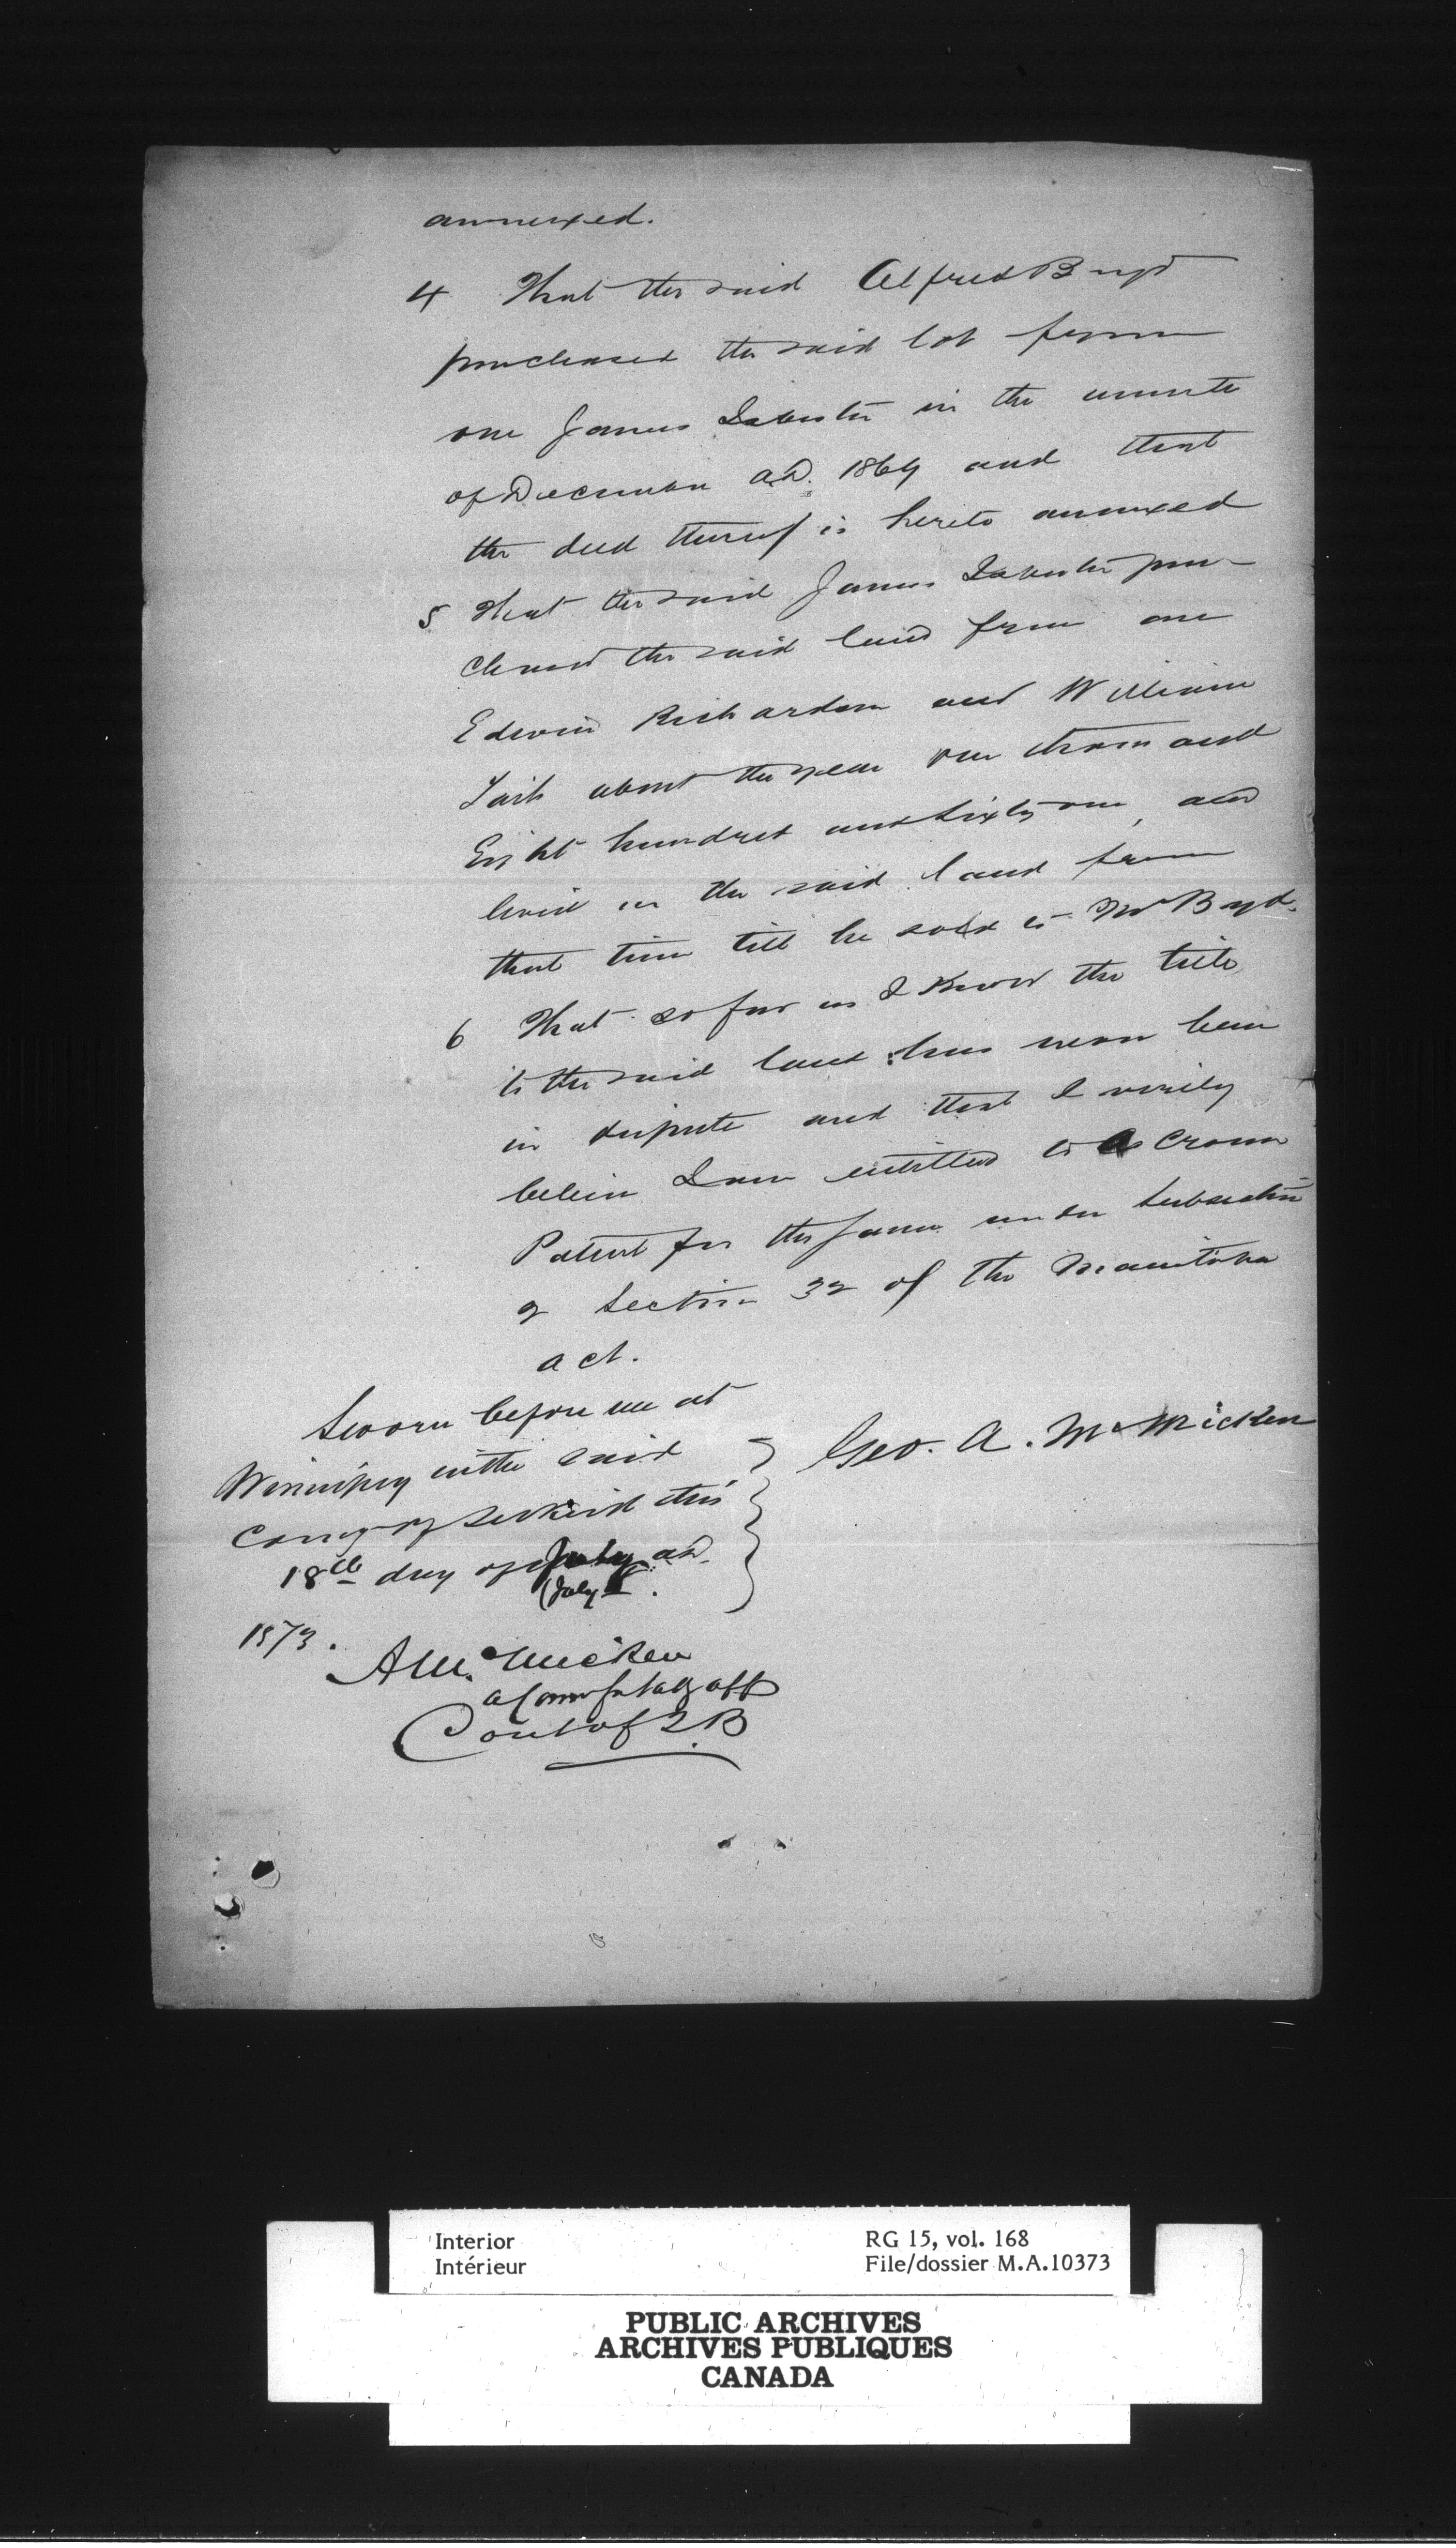 annexed.
4 That the said Alfred Boyd
purchased the said lot from
one James in the month
of December A.D. 1869 and that
the deed thereof is hereto annexed
5 That the said James pur-
chased the said land from one
Edwin Richardson and William
about the year one thousand
Eight hundred and sixty one, and
lived on the said land from
that time till he sold to Mr Boyd.
6 That so far as I know the title
to the said land has never been
in dispute and that I verily
believe I am entitled to a Crown
Patent for the same under subsection
Section 32 of the Manitoba
act.
Sworn before me at
Winnipeg in the said
County of Selkirk this
18th day of July A.D.
(July
1873.
Geo. A. McMicken
A McMicken
a Com for takg aff
Court of Q.B
Interior
Intérieur
RG 15, vol. 168
File/dossier M.A.10373
PUBLIC ARCHIVES
ARCHIVES PUBLIQUES
CANADA